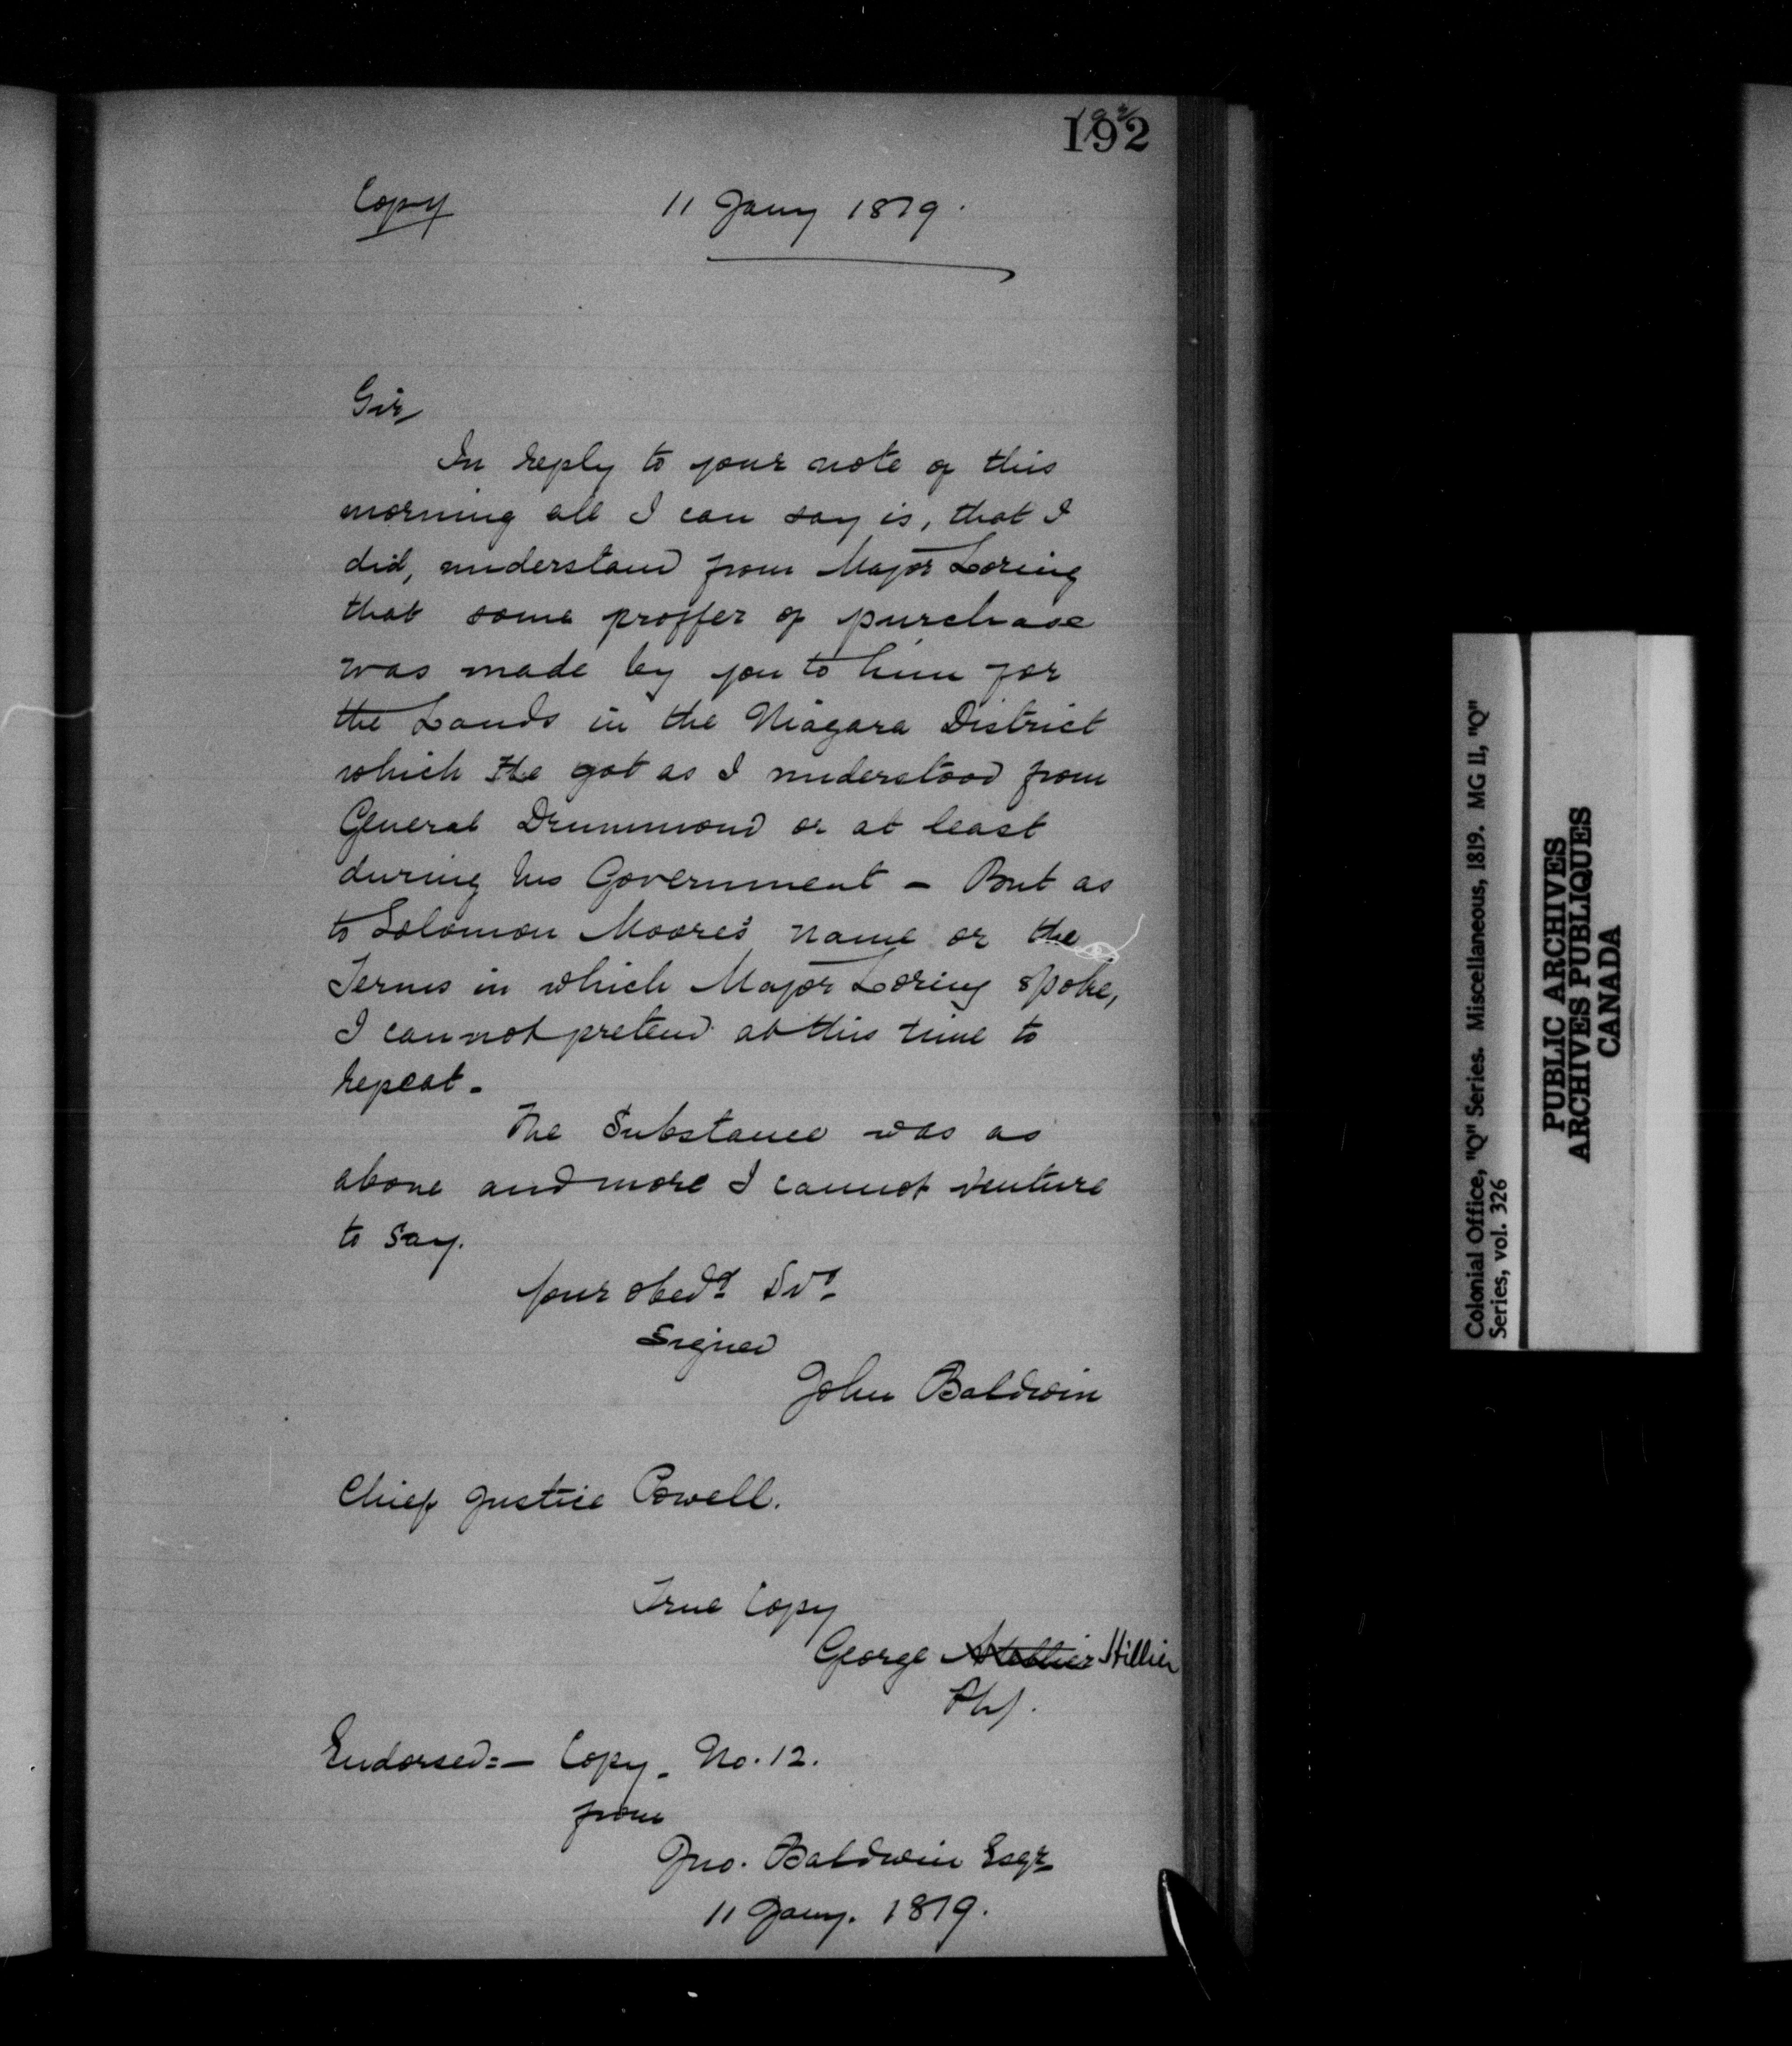 192
Copy 11 Jany 1819.
Sir
In reply to your note of this
morning all I can say is, that I
did, understand from Major Loring
that some proffer of purchase
was made by you to him for
the Lands in the Niagara District
which He got as I understood from
General Drummond or at least
during his Government - But as
to Solomon Moore's name or the
Terms in which Major Loring spoke,
I cannot pretend at this time to
repeat.
The Substance was as
above and more I cannot venture
to say.
Your obedt Svt
Signed
John Baldwin
Chief Justice Powell.
True Copy
George Hillier
Endorsed:- Copy - No. 12.
from
Jno. Baldwin Esqr
11 Jany. 1819.
Colonial Office, "Q" Series. Miscellaneous, 1819. MG 11, "Q"
Series, vol. 326
PUBLIC ARCHIVES
ARCHIVES PUBLIQUES
CANADA